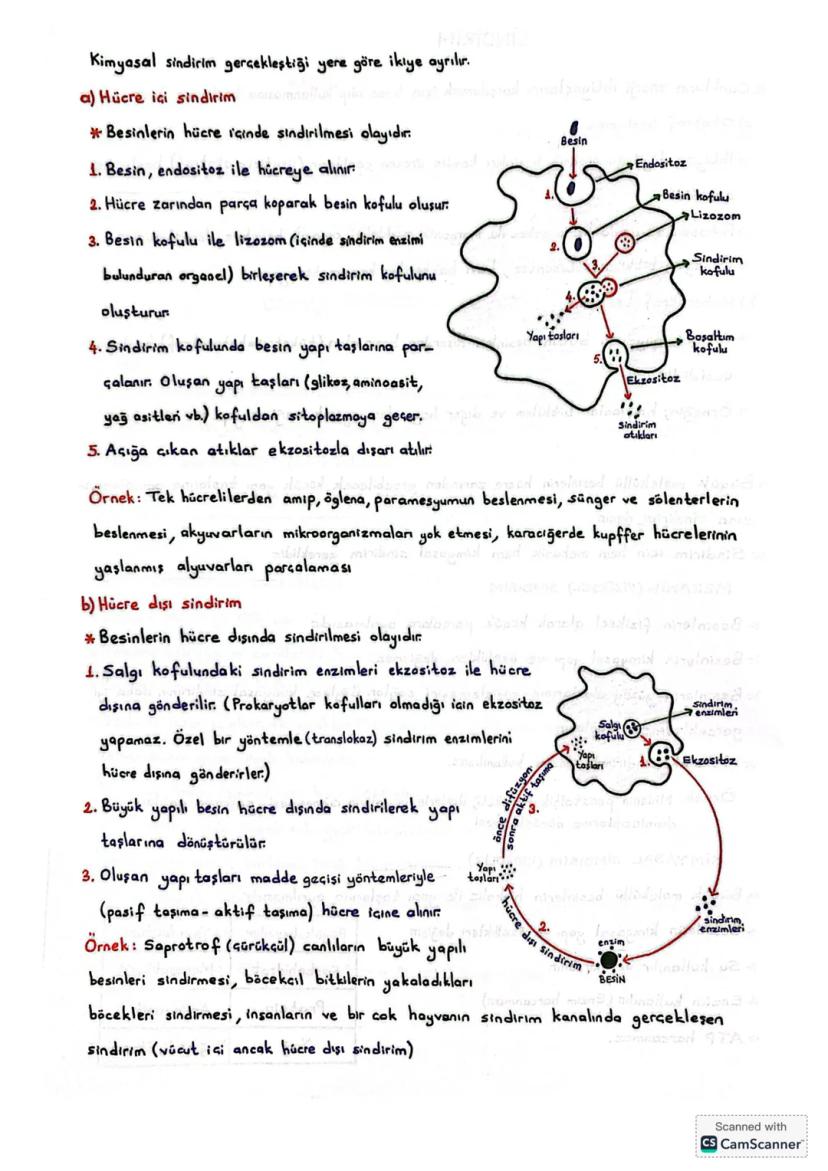 Kimyasal sindirim gerçekleştiği yere göre ikiye ayrılır.
a) Hücre içi sindirim
* Besinlerin hücre içinde sindirilmesi olayıdır.
1. Besin, endositoz ile hücreye alınır.
2. Hücre zarından parça koparak besin kofulu oluşur.
3. Besin kofulu ile lizozom (içinde sindirim enzimi
bulunduran organel) birleşerek sindirim kofulunu
oluşturur.
4. Sindirim kofulunda besin yapı taşlarına par-
çalanır. Oluşan yapı taşları (glikoz, aminoasit,
yağ asitleri vb.) kofuldan sitoplazmaya geçer.
5. Açığa çıkan atıklar ekzositozla dışarı atılır.
Besin
Endositoz
1.
Besin kofulu
Lizozom
2.
3.
Sindirim
kofulu
4.
Yapı taşları
Boşaltım
kofulu
5.
Ekzositoz
Sindirim
atıkları
Örnek: Tek hücrelilerden amip, öglena, paramesyumun beslenmesi, sünger ve sölenterlerin
beslenmesi, akyuvarların mikroorganizmaları yok etmesi, karaciğerde kupffer hücrelerinin
yaşlanmış alyuvarları parçalaması
b) Hücre dışı sindirim
* Besinlerin hücre dışında sindirilmesi olayıdır.
1. Salgı kofulundaki sindirim enzimleri ekzositoz ile hücre
dışına gönderilir. (Prokaryotlar kofulları olmadığı için ekzositoz
yapamaz. Özel bir yöntemle (translokaz) sindirim enzimlerini
hücre dışına gönderirler.)
2. Büyük yapılı besin hücre dışında sindirilerek yapı
taşlarına dönüştürülür.
3. Oluşan yapı taşları madde geçişi yöntemleriyle
(pasif taşıma - aktif taşıma) hücre içine alınır.
Salgı
kofulu
sindirim
enzimleri
Yapı
taşları
1.
Ekzositoz
önce difüzyon
sonra aktif taşıma
3.
Yapı
taşları
hücre dışı sindirim
2.
enzim
BESİN
sindirim
enzimleri
Örnek: Saprotrof (çürükçül) canlıların büyük yapılı
besinleri sindirmesi, böcekçil bitkilerin yakaladıkları
böcekleri sindirmesi, insanların ve bir çok hayvanın sindirim kanalında gerçekleşen
sindirim (vücut içi ancak hücre dışı sindirim)
Scanned with
CS CamScanner